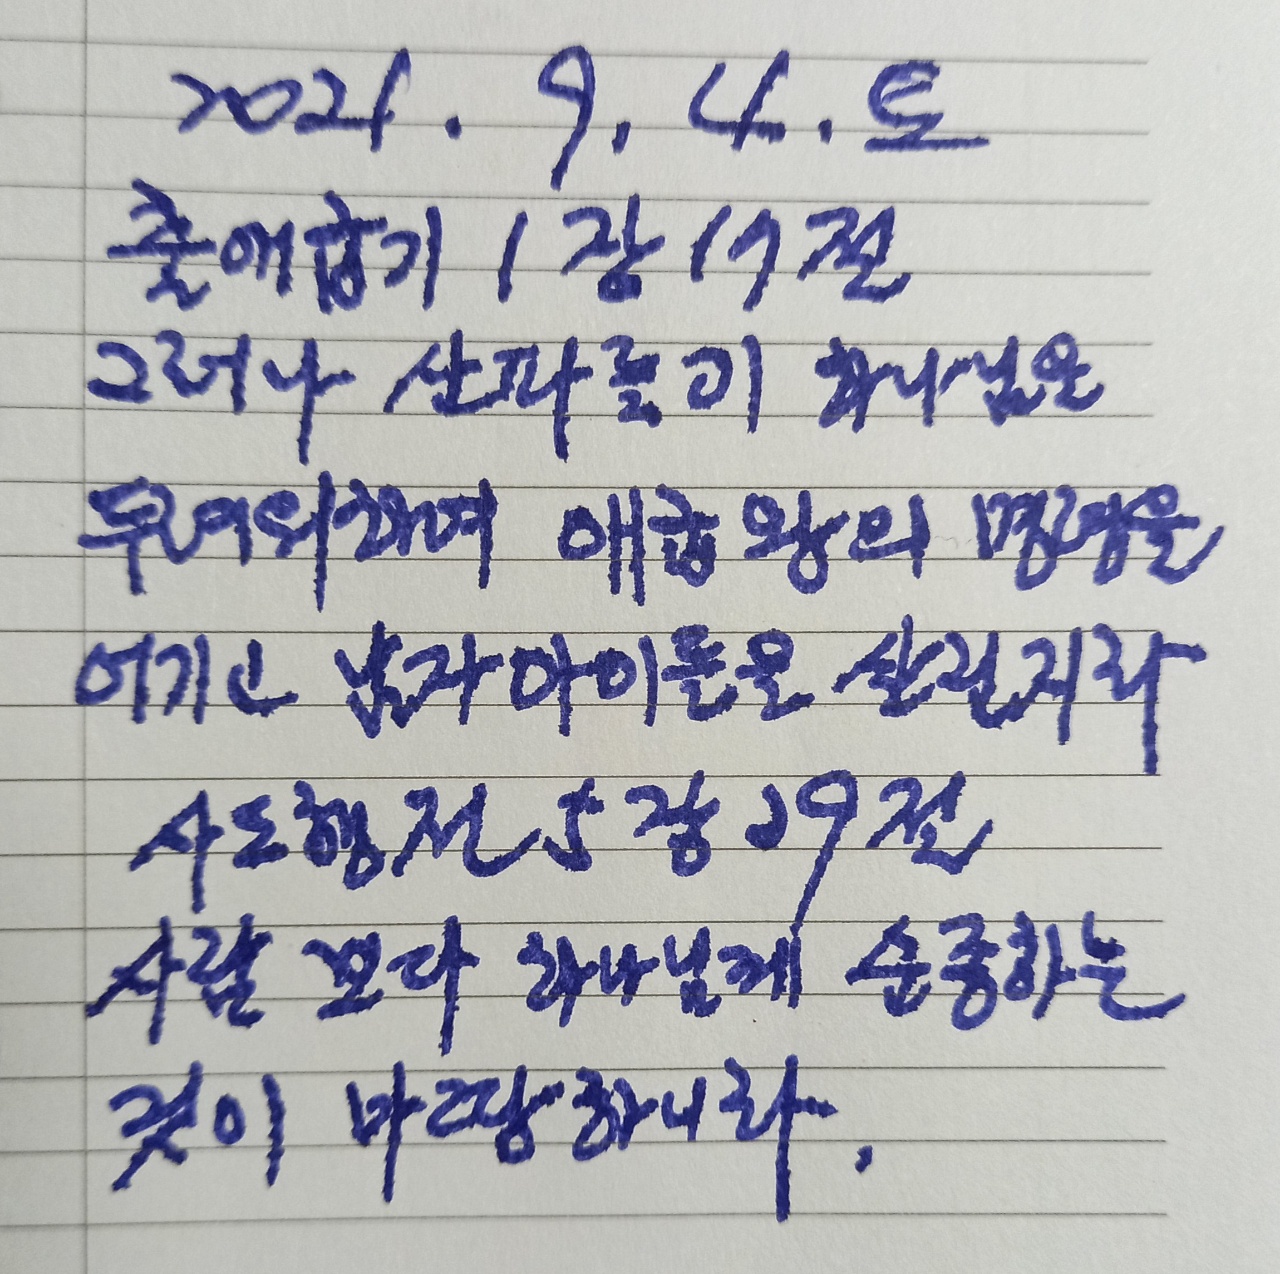 2021. 9. 4. 토
출애굽기 1장 17절
그러나 산파들이 하나님은
두려워하여 애굽왕의 명령을
어기고 남자아이들을 살린지라
사도행전 5장 29절
사람 보다 하나님께 순종하는
것이 마땅하니라.